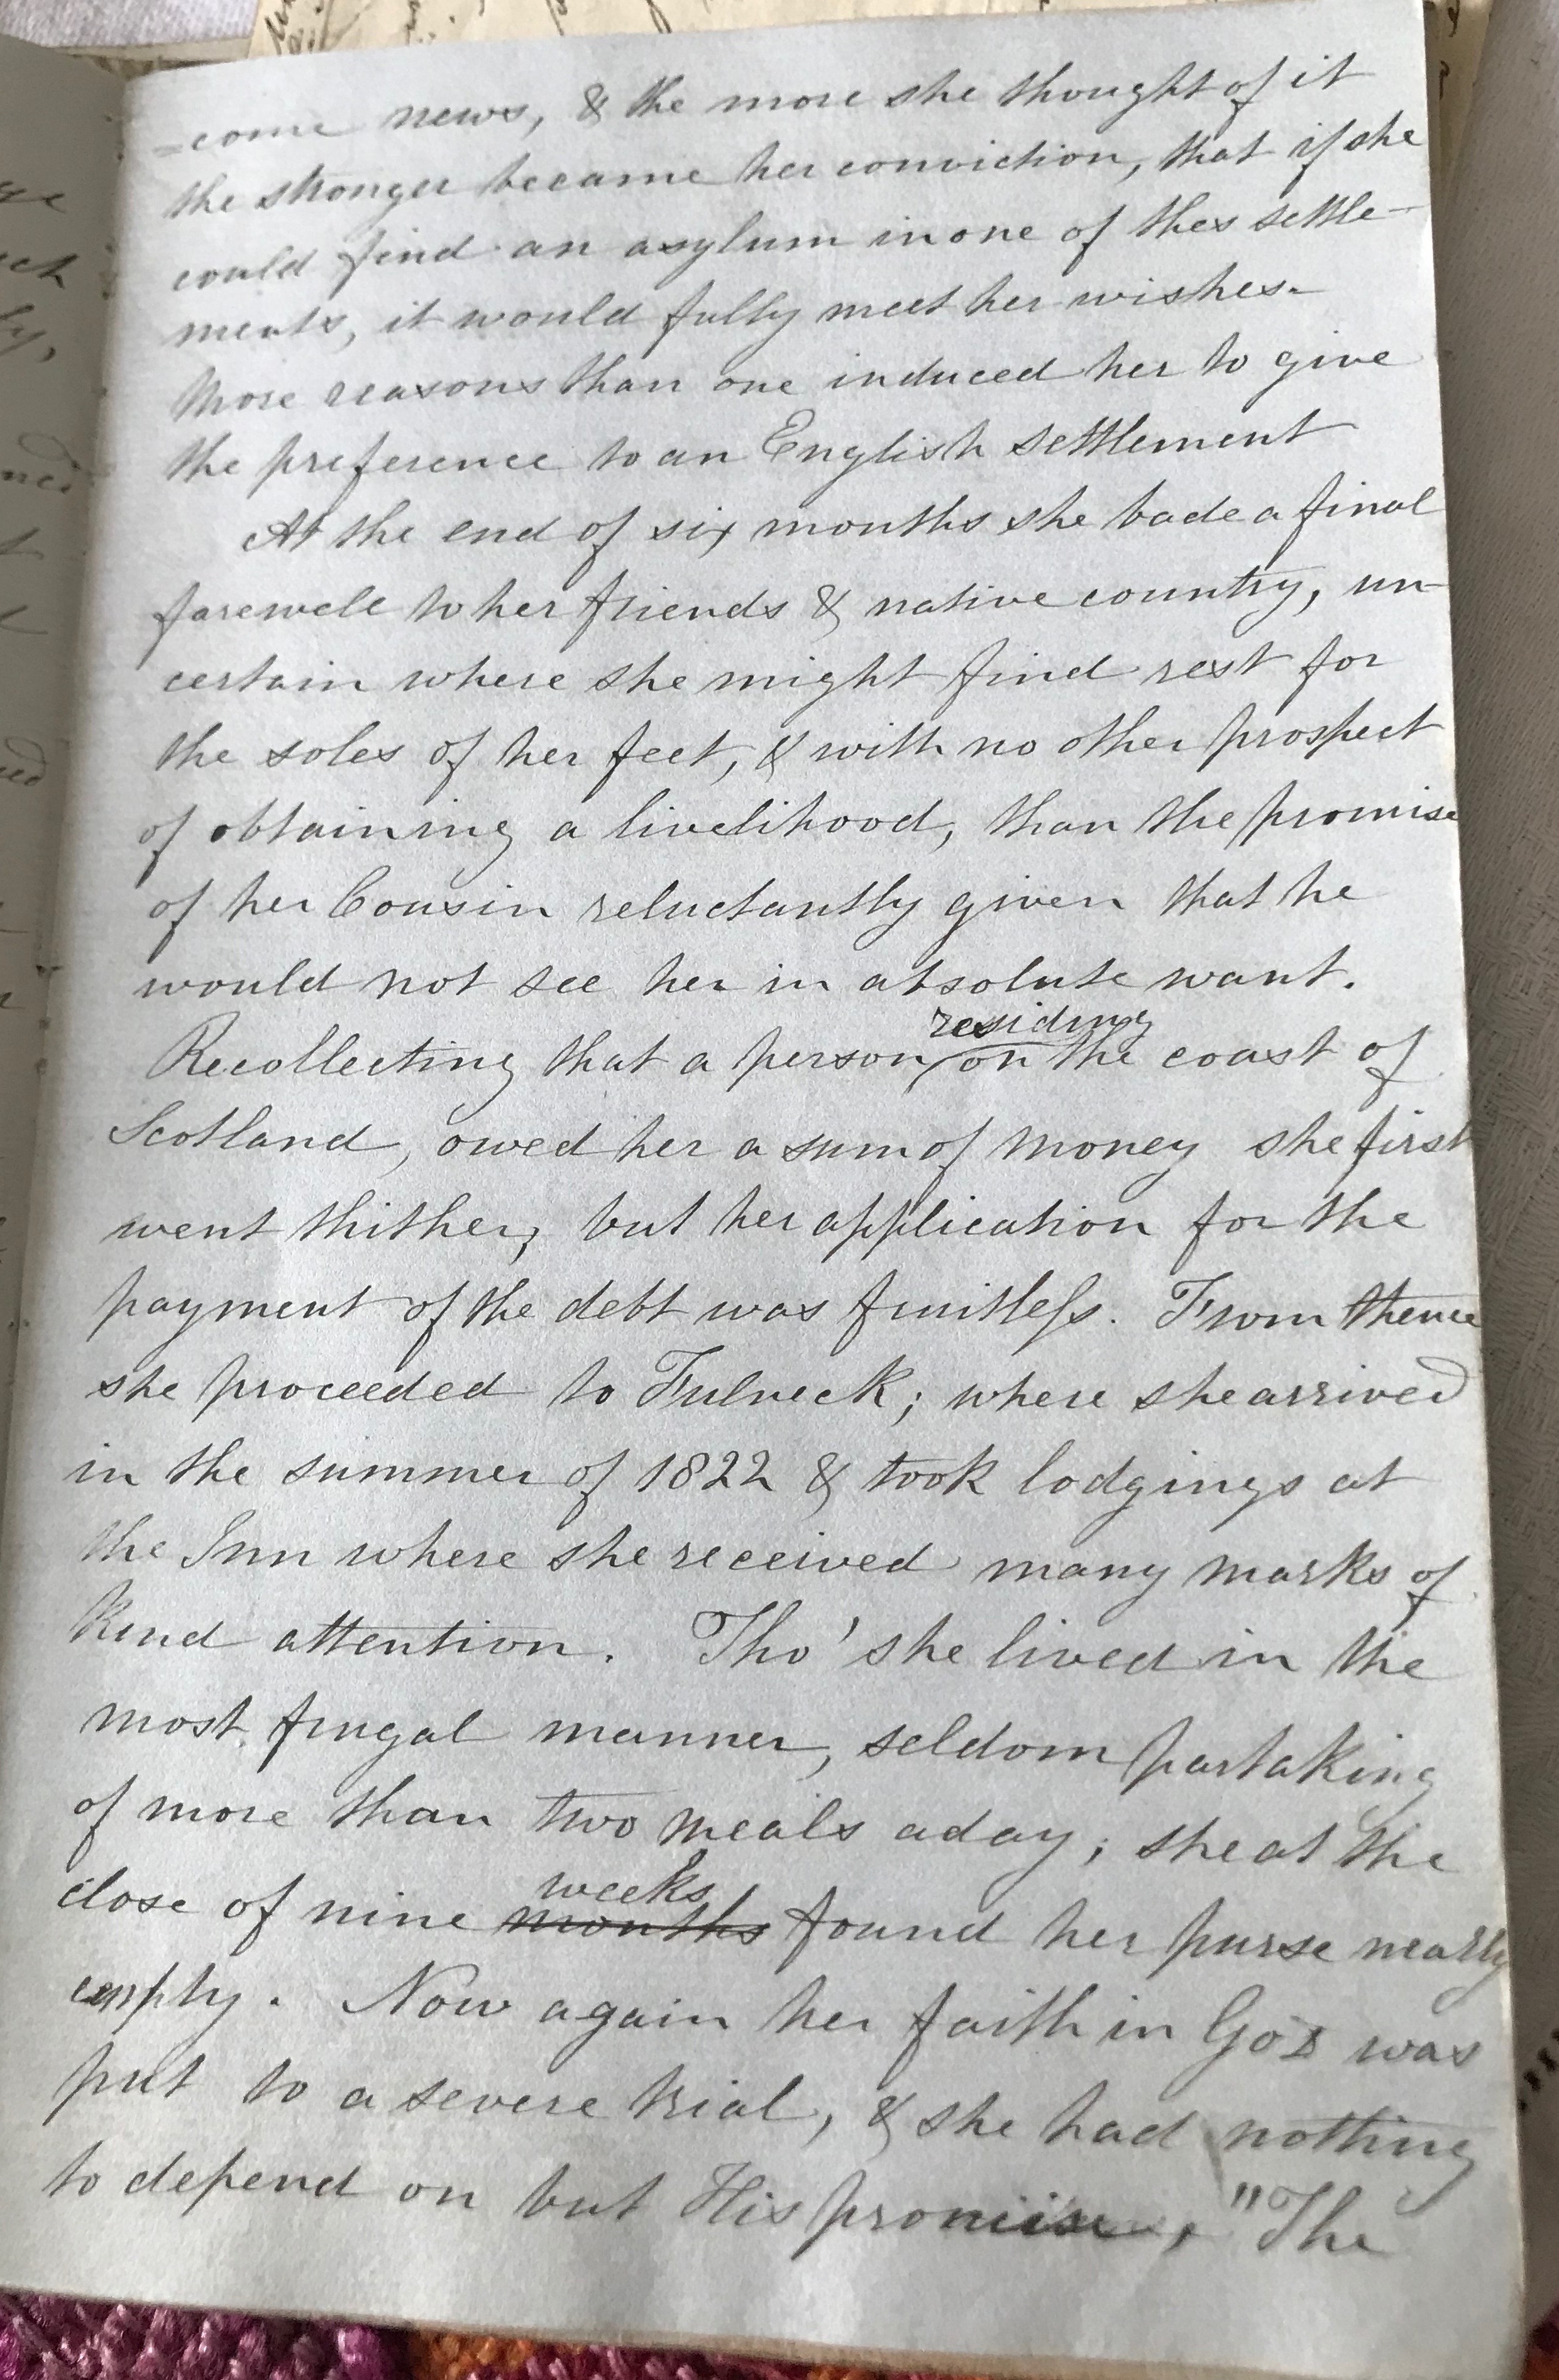 -come news, & the more she thought of it
the stronger became her conviction, that if she
could find an asylum in one of thes settle-
ments, it would fully meet her wishes.
More reasons than one induced her to give
the preference to an English settlement
At the end of six months she bade a final
farewell to her friends & native country, un-
certain where she might find rest for
the soles of her feet, & with no other prospect
of obtaining a livelihood, than the promise
of her Cousin reluctantly given that he
would not see her in absolute want.
residing
Recollecting that a person on the coast of
Scotland, owed her a sum of money she first
went thither, but her application for the
payment of the debt was fruitless. From thence
she proceeded to Fulneck; where she arrived
in the summer of 1822 & took lodgings at
the Inn where she received many marks of
kind attention. Tho' she lived in the
most frugal manner, seldom partaking
of more than two meals a day; she at the
weeks
close of nine months found her purse nearly
empty. Now again her faith in God was
put to a severe trial, & she had nothing
to depend on but His promise, "The